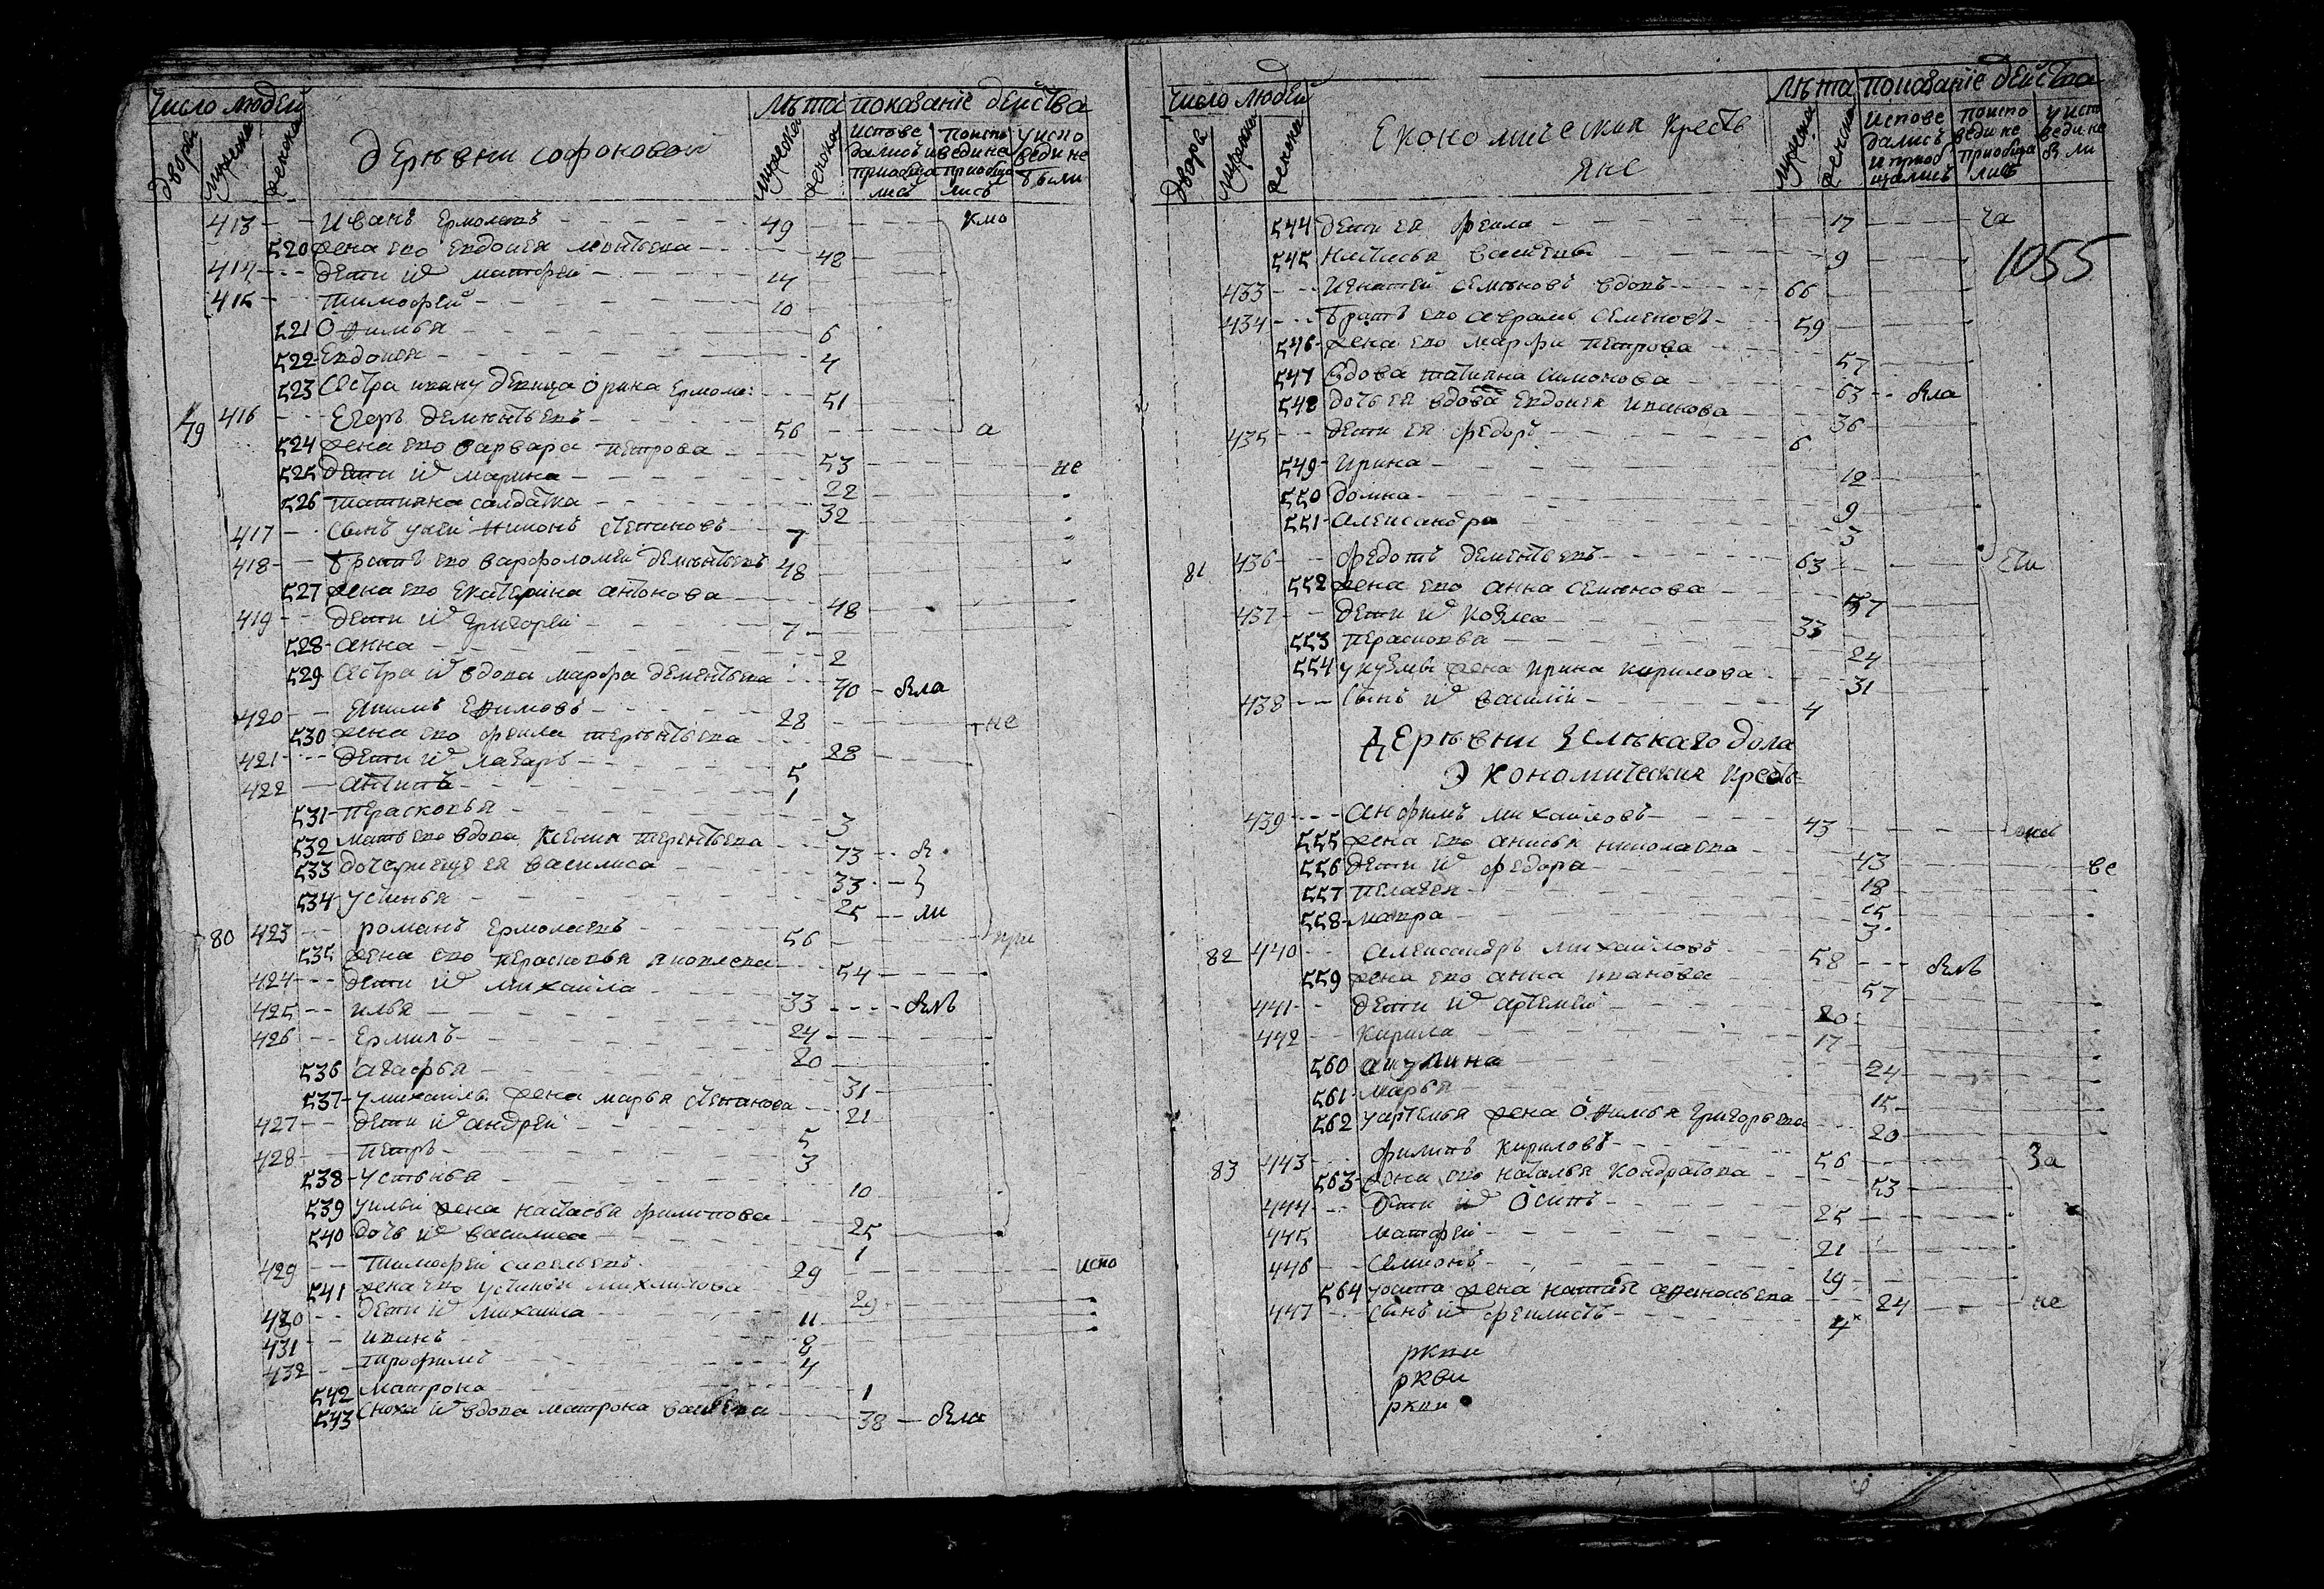 число людей
лѣта показаніе действа
двора мужска женска
деревни софоновой
мужска женска
исповедались и приобщались
по исповеди не приобщались
у исповеди не были
413 Иванъ Ермолаевъ 49
520 жена ево Евдокея 42
414 дети их матфей 14
415 Тимофей 10
521 Офимья 6
522 Евдокея 4
523 Сестра ивану девица Орина Ермола: 51
79 416 Егоръ Дементьевъ 56 а
524 жена ево варвара петрова 53 не
525 дети их марина 22
526 татияна салдатка 32
417 Сынъ у ней никонъ степановъ 7
418 братъ ево варфоломей дементьевъ 48
527 жена ево Екатерина антонова 48
419 дети их Григорей 7
528 анна 2
529 Сестра их вдова марфа дементьева 40 была
420 Екимъ Ефимовъ 28 не
530 жена ево фекла терентьева 28
421 дети их макаръ 5
422 антипъ 1
531 Парасковья 3
532 мать ево вдова Ксения терентьева 73
533 дочери ей василиса 33
534 устинья 25 ли
80 423 романъ Ермолаевъ 56
535 жена ево парасковья яковлева 54
424 дети их михаила 33 былъ
425 илья 24
426 Ермилъ 20
536 агафья 31
537 у михаила жена марья степанова 21
427 дети их андрей 5
428 петръ 3
538 устинья 10
539 у ильи жена настасья филипова 25
540 дочь их василиса 1
429 Тимофей савельевъ 29 испо
541 жена ево устинья михайлова 29
430 дети их михаила 11
431 иванъ 8
432 трофимъ 4
542 матрона 1
543 Сноха их вдова матрона 38 была
число людей
лѣта показаніе действа
двора мужска женска
Економическия крестьяне
мужска женска
исповедались и приобщались
по исповеди не приобщались
у исповеди не были
544 дети ея фекла 17
545 настасья 9
1055
433 Игнатей семеновъ вдовъ 66
434 братъ ево аврамъ семеновъ 59
546 жена ево марфа петрова 57
547 вдова татияна симонова 63 была
548 дочь ея вдова Евдокея иванова 36
435 дети ея федоръ 6
549 ирина 12
550 домна 9
551 александра 3
81 436 федотъ дементьевъ 63
552 жена ево анна семенова 57
437 дети их козма 33
553 парасковья 24
554 у кузмы жена ирина кирилова 31
438 Сынъ их василий 4
деревни великаго дола
Экономическия крестья
439 анфимъ михайловъ 43
555 жена ево анисья николаева 43 все
556 дети их федора 18
557 пелагея 15
558 мавра 3
82 440 александръ михайловъ 58 былъ
559 жена ево анна иванова 57
441 дети их артемей 20
442 Кирила 17
560 акулина 24
561 марья 15
562 у артемья жена Офимья Григорьева 20
83 443 филипъ Кириловъ 56 за
563 жена ево наталья кондратова 53
444 дети их Осипъ 25
445 матфей 21
446 Семионъ 19
564 у осипа жена настасья афанасьева 24
447 Сынъ их феклистъ 4 не